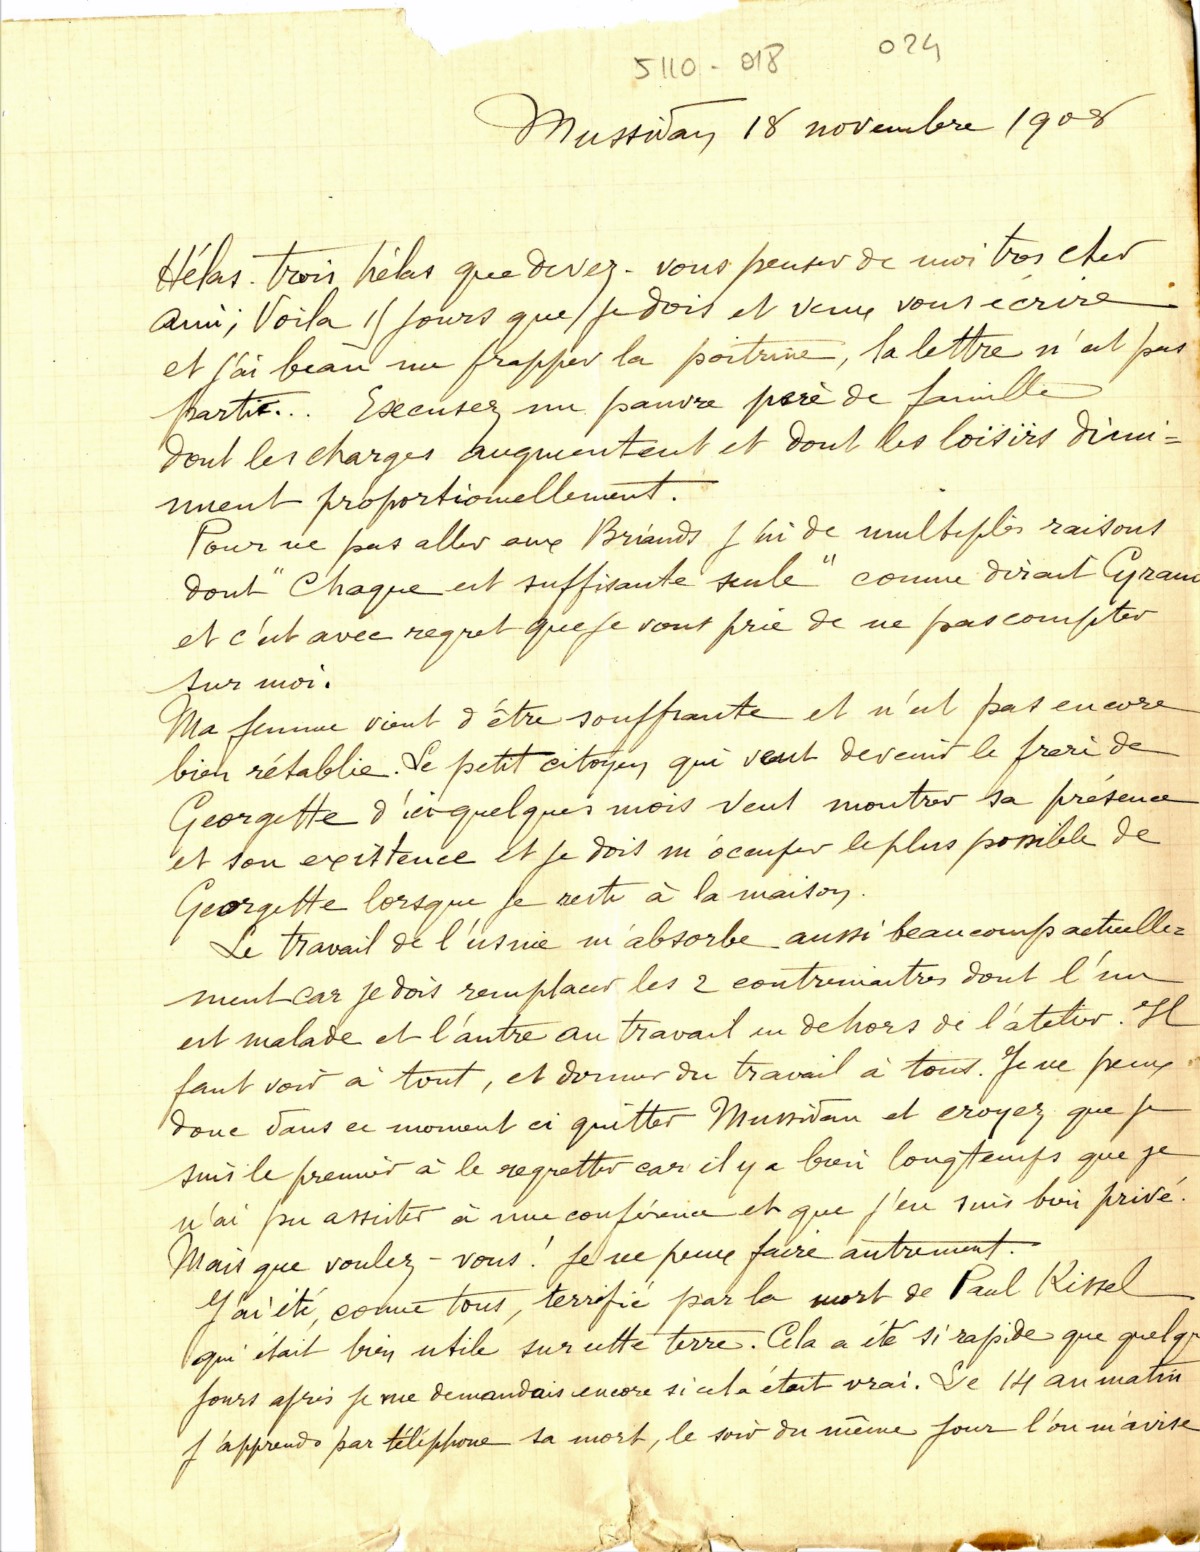 5110 - 018 024
Mussidan 18 novembre 1908
Hélas. trois hélas que devez-vous penser de moi tres cher
ami; Voila 15 jours que je dois et veux vous écrire
et j'ai beau me frapper la poitrine, la lettre n'est pas
partie... Excusez un pauvre père de famille
dont les charges augmentent et dont les loisirs dimi=
nuent proportionnellement.
Pour ne pas aller aux Briands j'ai de multiples raisons
dont "Chaque est suffisante seule" comme dirait Cyrano
et c'est avec regret que je vous prie de ne pas compter
sur moi.
Ma femme vient d'être souffrante et n'est pas encore
bien rétablie. Le petit citoyen qui veut devenir le frere de
Georgette d'ici quelques mois veut montrer sa présence
et son existence et je dois m'occuper le plus possible de
Georgette lorsque je reste à la maison.
Le travail de l'usine m'absorbe aussi beaucoup actuelle=
ment car je dois remplacer les 2 contremaitres dont l'un
est malade et l'autre au travail en dehors de l'atelier. Il
faut voir à tout, et donner du travail à tous. Je ne peux
donc dans ce moment ci quitter Mussidan et croyez que je
suis le premier à le regretter car il y a bien longtemps que je
n'ai pu assister à une conférence et que j'en suis bien privé.
Mais que voulez-vous! Je ne peux faire autrement.
J'ai été, comme tous, terrifié par la mort de Paul Kissel
qui était bien utile sur cette terre. Cela a été si rapide que quelqu
jours après je me demandais encore si cela était vrai. Le 14 au matin
j'apprends par téléphone sa mort, le soir du même jour l'on m'avise